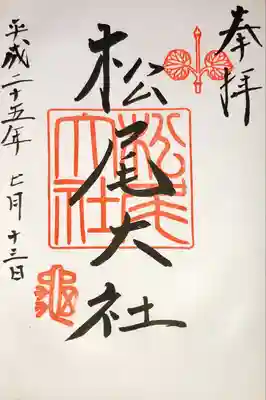 奉拝
松尾大社
松尾大社
平成二十五年 七月 十三日